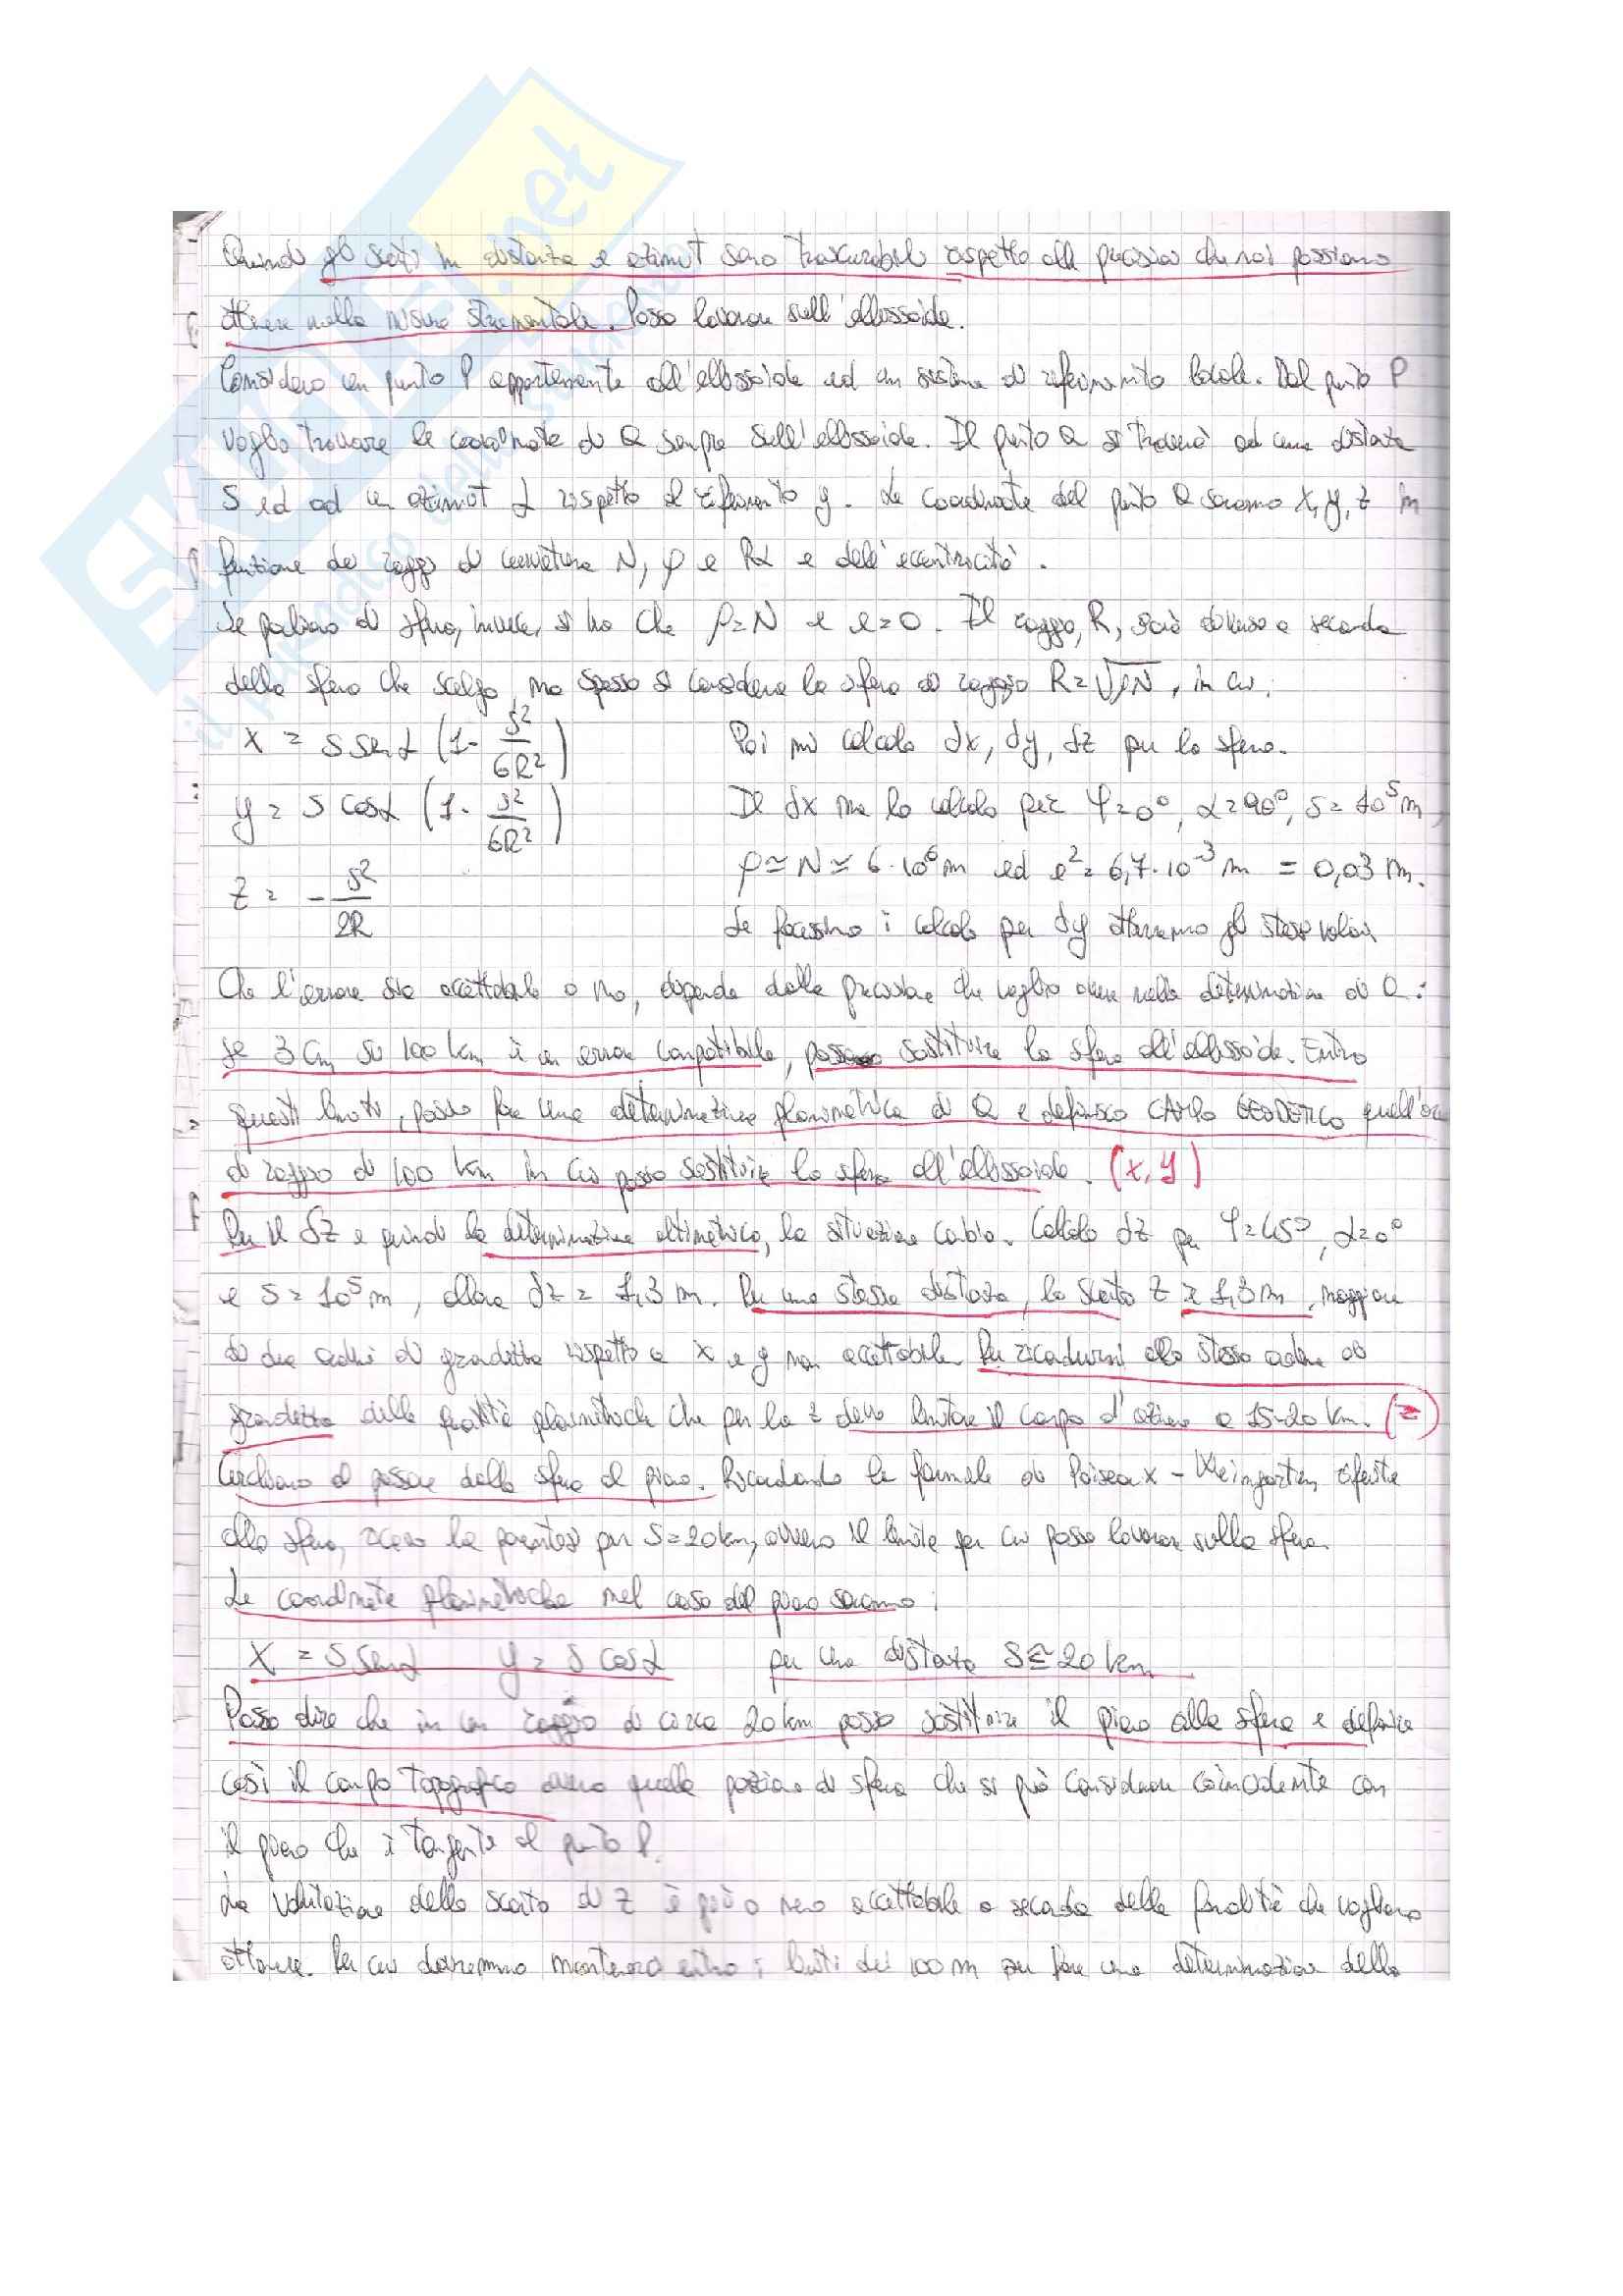 SKUOLA.net
il paradiso dello studente
Quindi gli scarti in distanza e azimut sono trascurabili rispetto alla precisione che noi possiamo
ottenere nelle misure strumentale. Posso lavorare sull'ellissoide.
Considero un punto P appartenente all'ellissoide ed un sistema di riferimento locale. Dal punto P
voglio trovare le coordinate di Q sempre sull'ellissoide. Il punto Q si troverà ad una distanza
S ed ad un azimut α rispetto al riferimento y. Le coordinate del punto Q saranno x, y, z in
funzione dei raggi di curvatura N, ρ e Rα e dell'eccentricità.
Se parliamo di sfera, invece, si ha che ρ=N e e=0. Il raggio, R, sarà diverso a seconda
della sfera che scelgo, ma spesso si considera la sfera di raggio R=√ρN, in cui:
x = s senα (1- s²/6R²) Poi mi calcolo δx, δy, δz per la sfera.
y = s cosα (1- s²/6R²) Il δx me lo calcolo per φ=0°, α=90°, s=10⁵m,
z = - s²/2R ρ≃N≃6·10⁶m ed e²=6,7·10⁻³ m = 0,03 m.
Se facessimo i calcoli per δy otterremo gli stessi valori
Che l'errore sia accettabile o no, dipende dalla precisione che voglio avere nella determinazione di Q:
se 3 cm su 100 km è un errore compatibile, posso sostituire la sfera all'ellissoide. Entro
questi limiti, posso fare una determinazione planimetrica di Q e definisco CAMPO GEODETICO quell'area
di raggio di 100 km in cui posso sostituire la sfera all'ellissoide. (x, y)
Per il δz e quindi la determinazione altimetrica, la situazione cambia. Calcolo δz per φ=45°, α=0°
e s=10⁵m, allora δz = 1,3 m. Per una stessa distanza, lo scarto z è 1,3 m, maggiore
di due ordini di grandezza rispetto a x e y non accettabile. Per ricadurmi allo stesso ordine di
grandezza delle quantità planimetriche che per la z devo limitare il campo d'azione a 15-20 km. (z)
Cerchiamo di passare dalla sfera al piano. Ricordando le formule di Poiseaux - Weingarten, riferite
alla sfera, le parentesi per S=20km, ovvero il limite per cui posso lavorare sulla sfera.
Le coordinate planimetriche nel caso del piano saranno:
x = s senα y = s cosα per una distanza S≅20 km
Posso dire che in un raggio di circa 20 km posso sostituire il piano alla sfera e definire
così il campo topografico ovvero quella porzione di sfera che si può considerare coincidente con
il piano che è tangente al punto P.
La valutazione dello scarto di z è più o meno accettabile a seconda delle finalità che vogliamo
ottenere. Per cui dovremmo mantenerci entro i limiti dei 100 m per fare una determinazione della